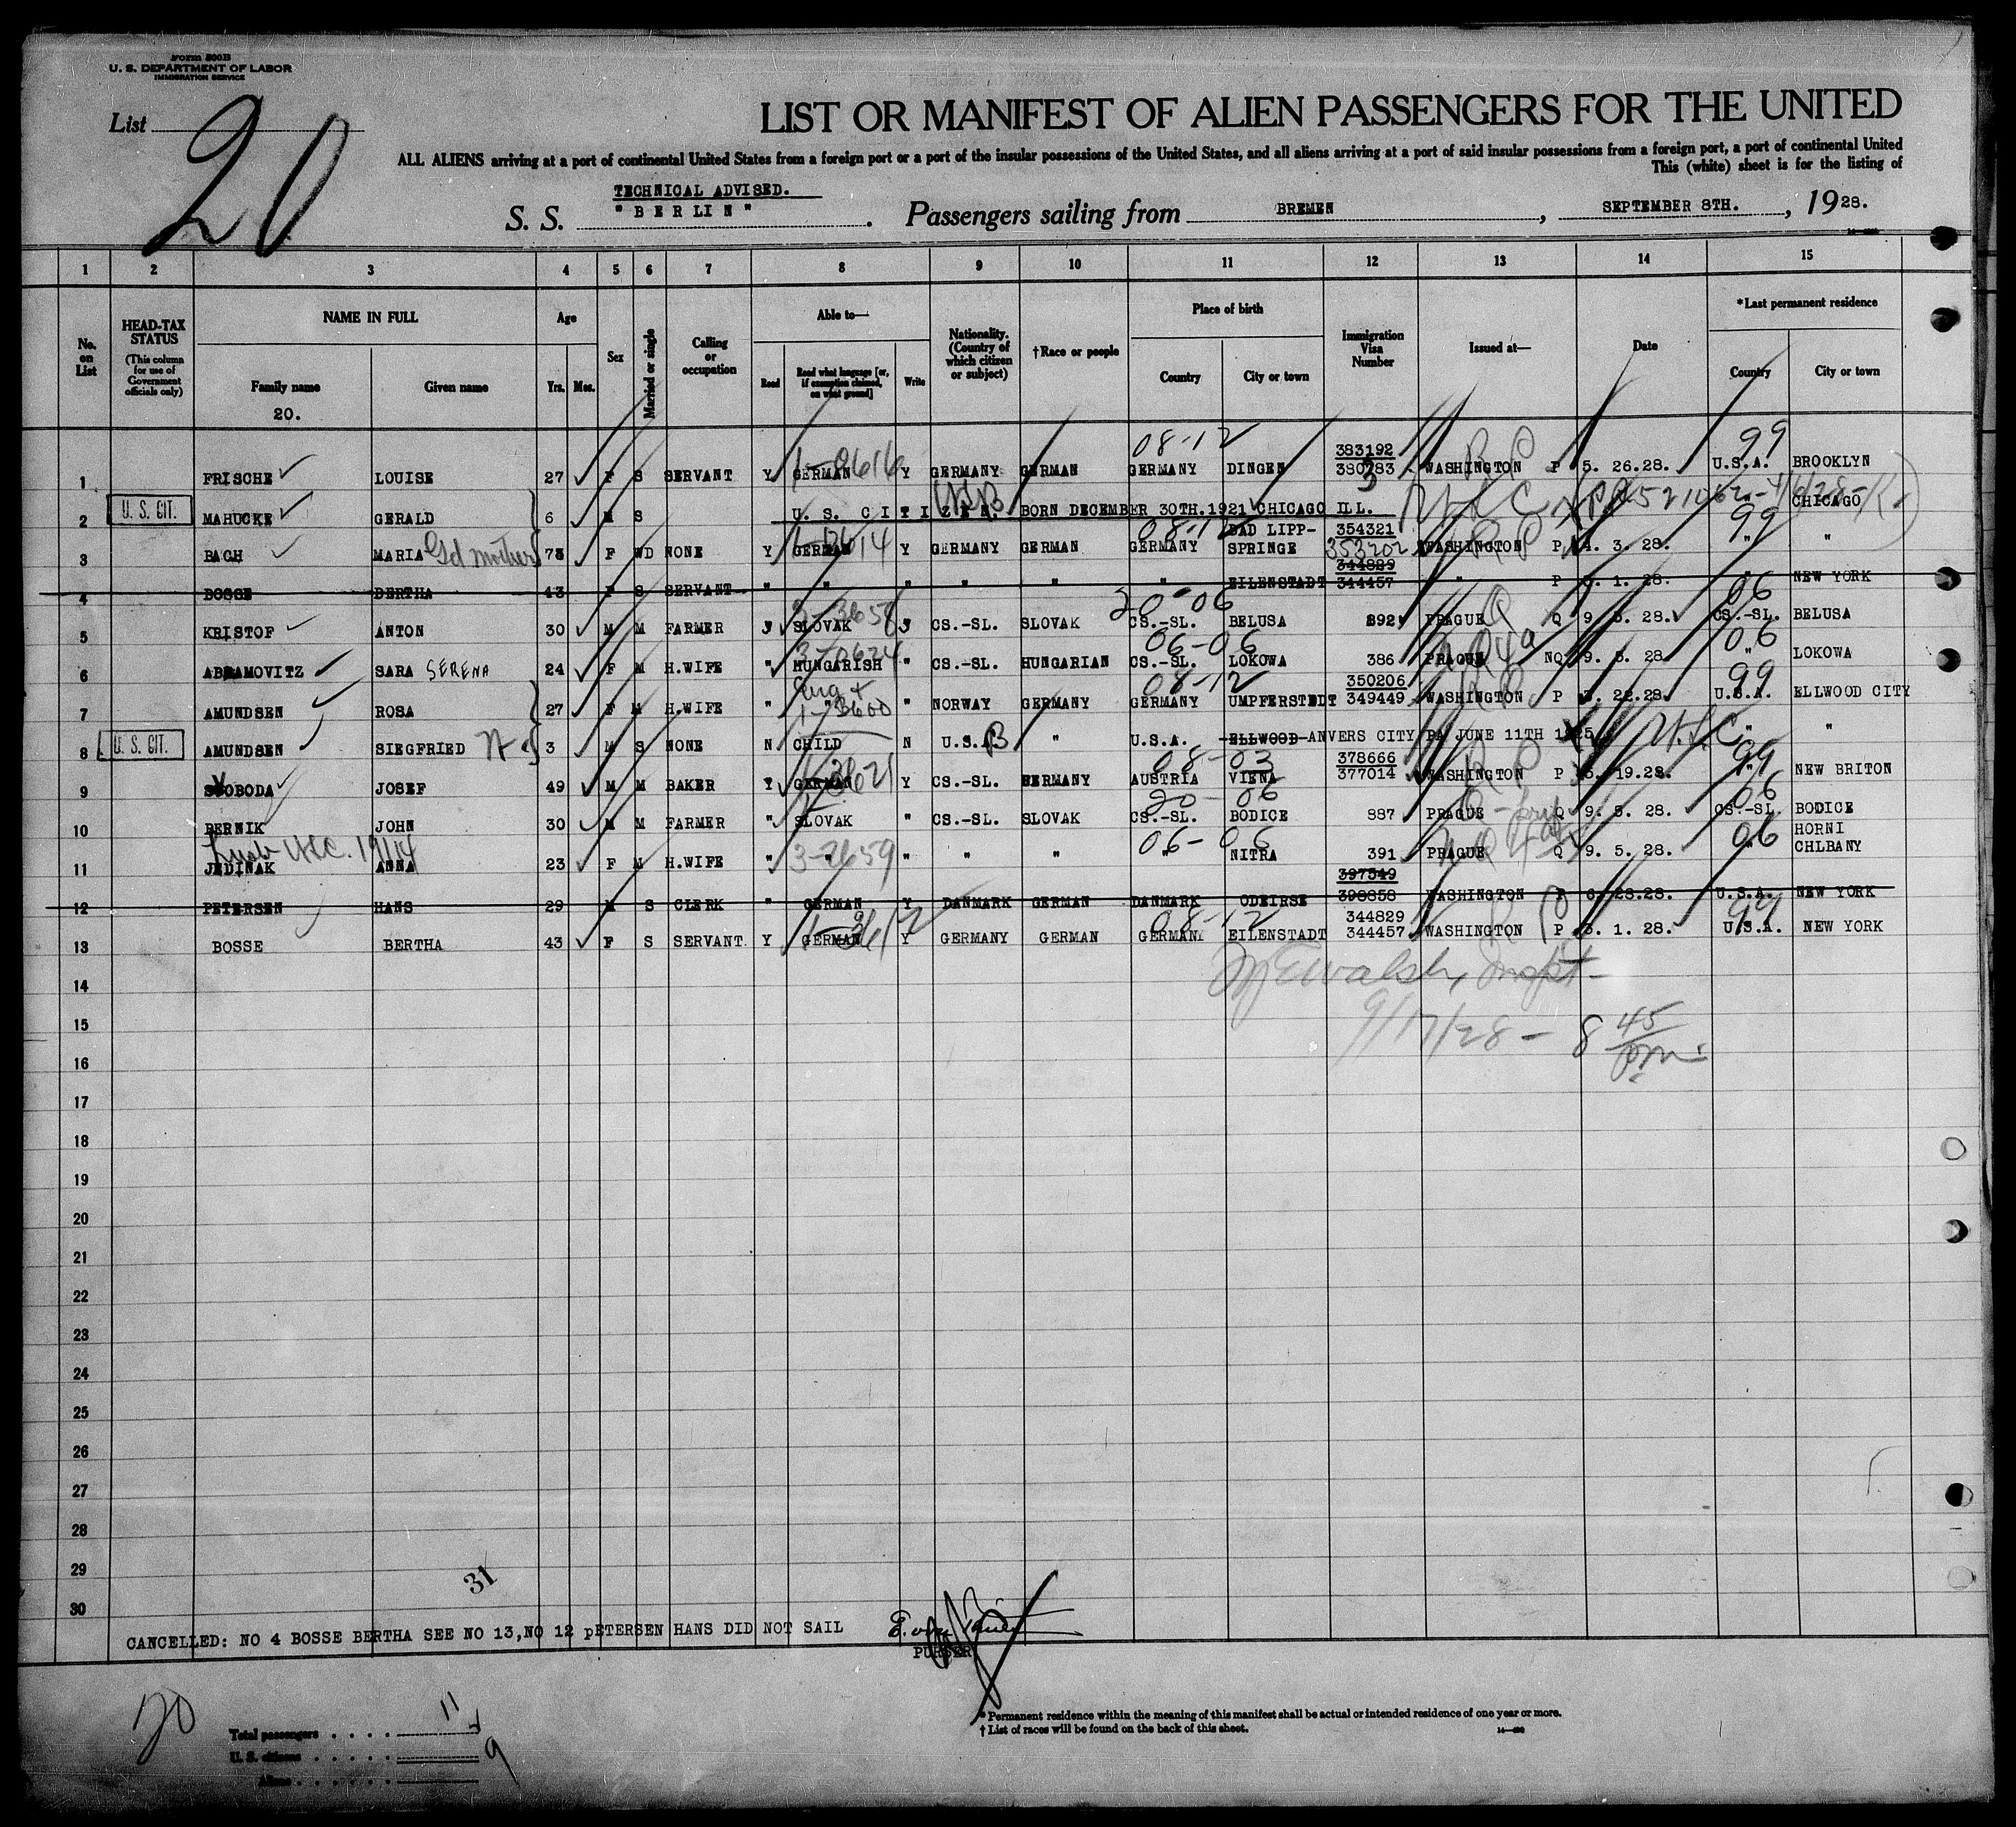 Form 500B
U. S. DEPARTMENT OF LABOR
IMMIGRATION SERVICE
List 20
LIST OR MANIFEST OF ALIEN PASSENGERS FOR THE UNITED
ALL ALIENS arriving at a port of continental United States from a foreign port or a port of the insular possessions of the United States, and all aliens arriving at a port of said insular possessions from a foreign port, a port of continental United
This (white) sheet is for the listing of
TECHNICAL ADVISED.
S. S. "BERLIN". Passengers sailing from BREMEN, SEPTEMBER 8TH., 1928.
1 2 3 4 5 6 7 8 9 10 11 12 13 14 15
No. on List
HEAD-TAX STATUS (This column for use of Government officials only)
NAME IN FULL Family name Given name
20.
Age Yrs. Mos.
Sex
Married or single
Calling or occupation
Able to— Read Read what language [or, if exemption claimed, on what ground] Write
Nationality. (Country of which citizen or subject)
†Race or people
Place of birth Country City or town
Immigration Visa Number
Issued at—
Date
*Last permanent residence Country City or town
08-12 383192 R P 99
1 FRISCHE LOUISE 27 F S SERVANT Y GERMAN Y GERMANY GERMAN GERMANY DINGEN 380283 WASHINGTON P 5. 26.28. U.S.A. BROOKLYN
2 U. S. CIT. MAHUCKE GERALD 6 M S U. S. CITIZEN. BORN DECEMBER 30TH.1921 CHICAGO ILL. CHICAGO
08-12 BAD LIPP- 354321 R P 99
3 BACH MARIA Gd mother 73 F WD NONE Y GERMAN Y GERMANY GERMAN GERMANY SPRINGE 353202 WASHINGTON P 4. 3. 28. " "
344829
4 BOSSE BERTHA 43 F S SERVANT " " " " " " EILENSTADT 344457 " P 3. 1. 28. " NEW YORK
20-06 Q 06
5 KRISTOF ANTON 30 M M FARMER SLOVAK CS.-SL. SLOVAK CS.-SL. BELUSA 892 PRAGUE Q 9. 5. 28. CS.-SL. BELUSA
06-06 06
6 ABRAMOVITZ SARA SERENA 24 F M H.WIFE " HUNGARISH " CS.-SL. HUNGARIAN CS.-SL. LOKOWA 386 PRAGUE NQ 9. 5. 28 " LOKOWA
08-12 350206 99
7 AMUNDSEN ROSA 27 F M H.WIFE " " " NORWAY GERMANY GERMANY UMPFERSTEDT 349449 WASHINGTON P 3. 22.28. U.S.A. ELLWOOD CITY
8 U. S. CIT. AMUNDSEN SIEGFRIED 3 M S NONE N CHILD N U.S. " U.S.A. ELLWOOD ANVERS CITY PA JUNE 11TH 1925 U.S.C. " "
08-03 378666 R P 99
9 SVOBODA JOSEF 49 M M BAKER Y GERMAN Y CS.-SL. GERMANY AUSTRIA VIENA 377014 WASHINGTON P 5. 19.28. " NEW BRITON
20-06 06
10 BERNIK JOHN 30 M M FARMER " SLOVAK " CS.-SL. SLOVAK CS.-SL. BODICE 887 PRAGUE Q 9. 5. 28. CS.-SL. BODICE
06-06 06 HORNI
11 JEDINAK ANNA 23 F M H.WIFE " " " " " " NITRA 391 PRAGUE Q 9. 5. 28. " CHLBANY
397549
12 PETERSEN HANS 29 M S CLERK " GERMAN Y DANMARK GERMAN DANMARK ODEIRSE 398858 WASHINGTON P 6. 28.28. U.S.A. NEW YORK
08-12 344829 R P 99
13 BOSSE BERTHA 43 F S SERVANT Y GERMAN Y GERMANY GERMAN GERMANY EILENSTADT 344457 WASHINGTON P 3. 1. 28. U.S.A. NEW YORK
14 Walsh, Inspt-
15 9/17/28 - 8 45 pm.
16
17
18
19
20
21
22
23
24
25
26
27
28
29
31
30
CANCELLED: NO 4 BOSSE BERTHA SEE NO 13,NO 12 pETERSEN HANS DID NOT SAIL
PURSER
20
Total passengers . . . . 11
U. S. citizens . . . . .
9
Aliens . . . . . .
*Permanent residence within the meaning of this manifest shall be actual or intended residence of one year or more.
†List of races will be found on the back of this sheet.